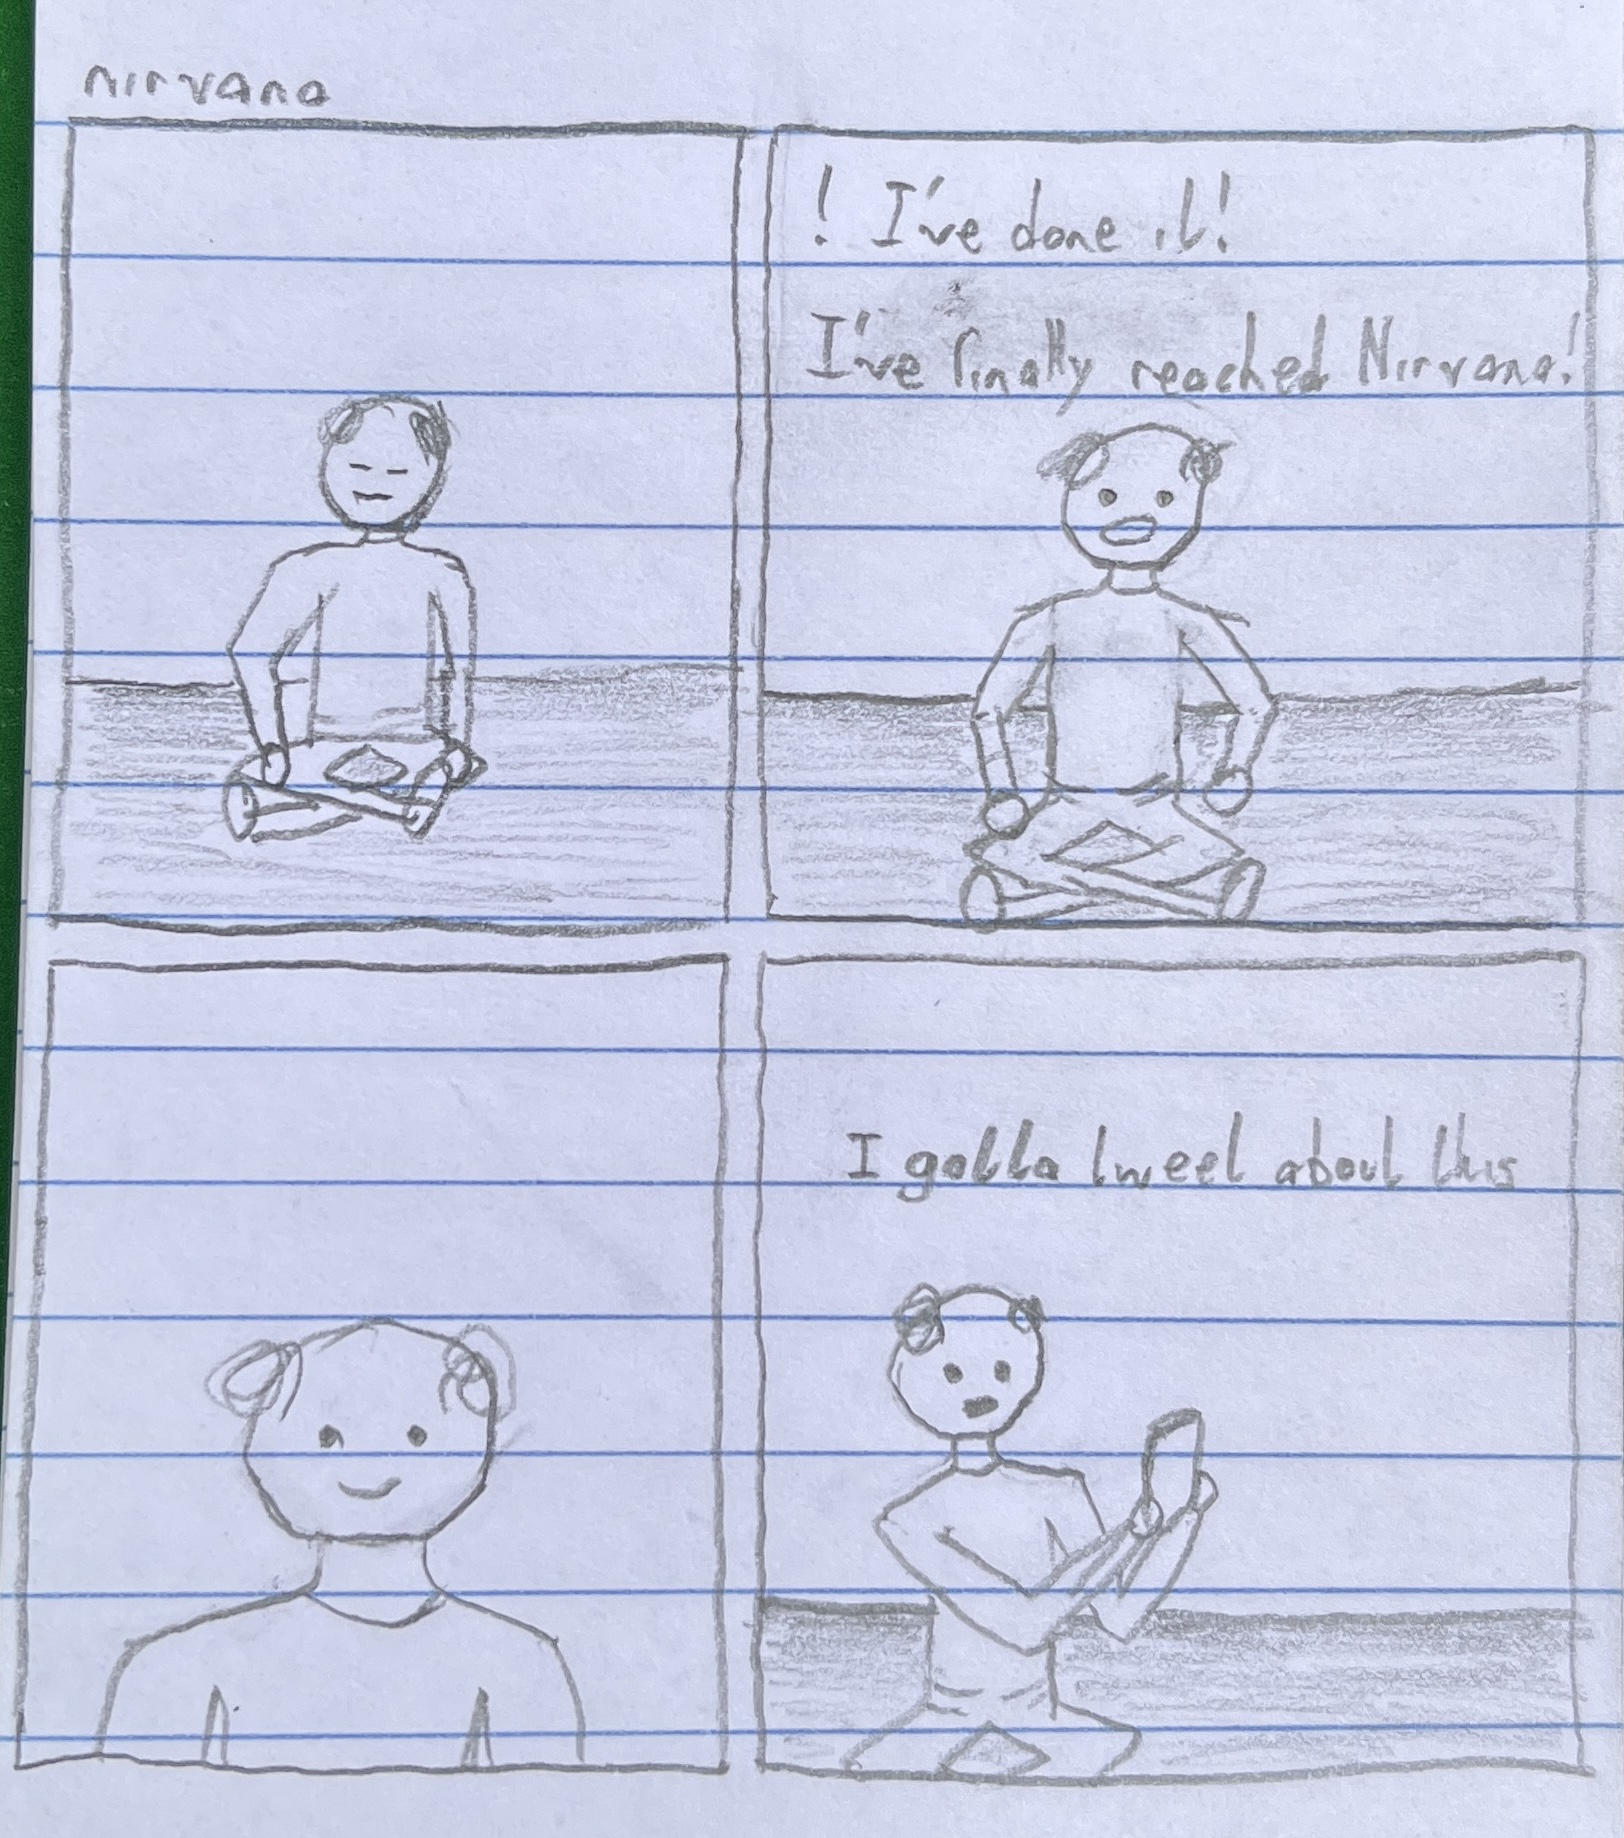 nirvana
! I've done it!
I've finally reached Nirvana!
I gotta tweet about this